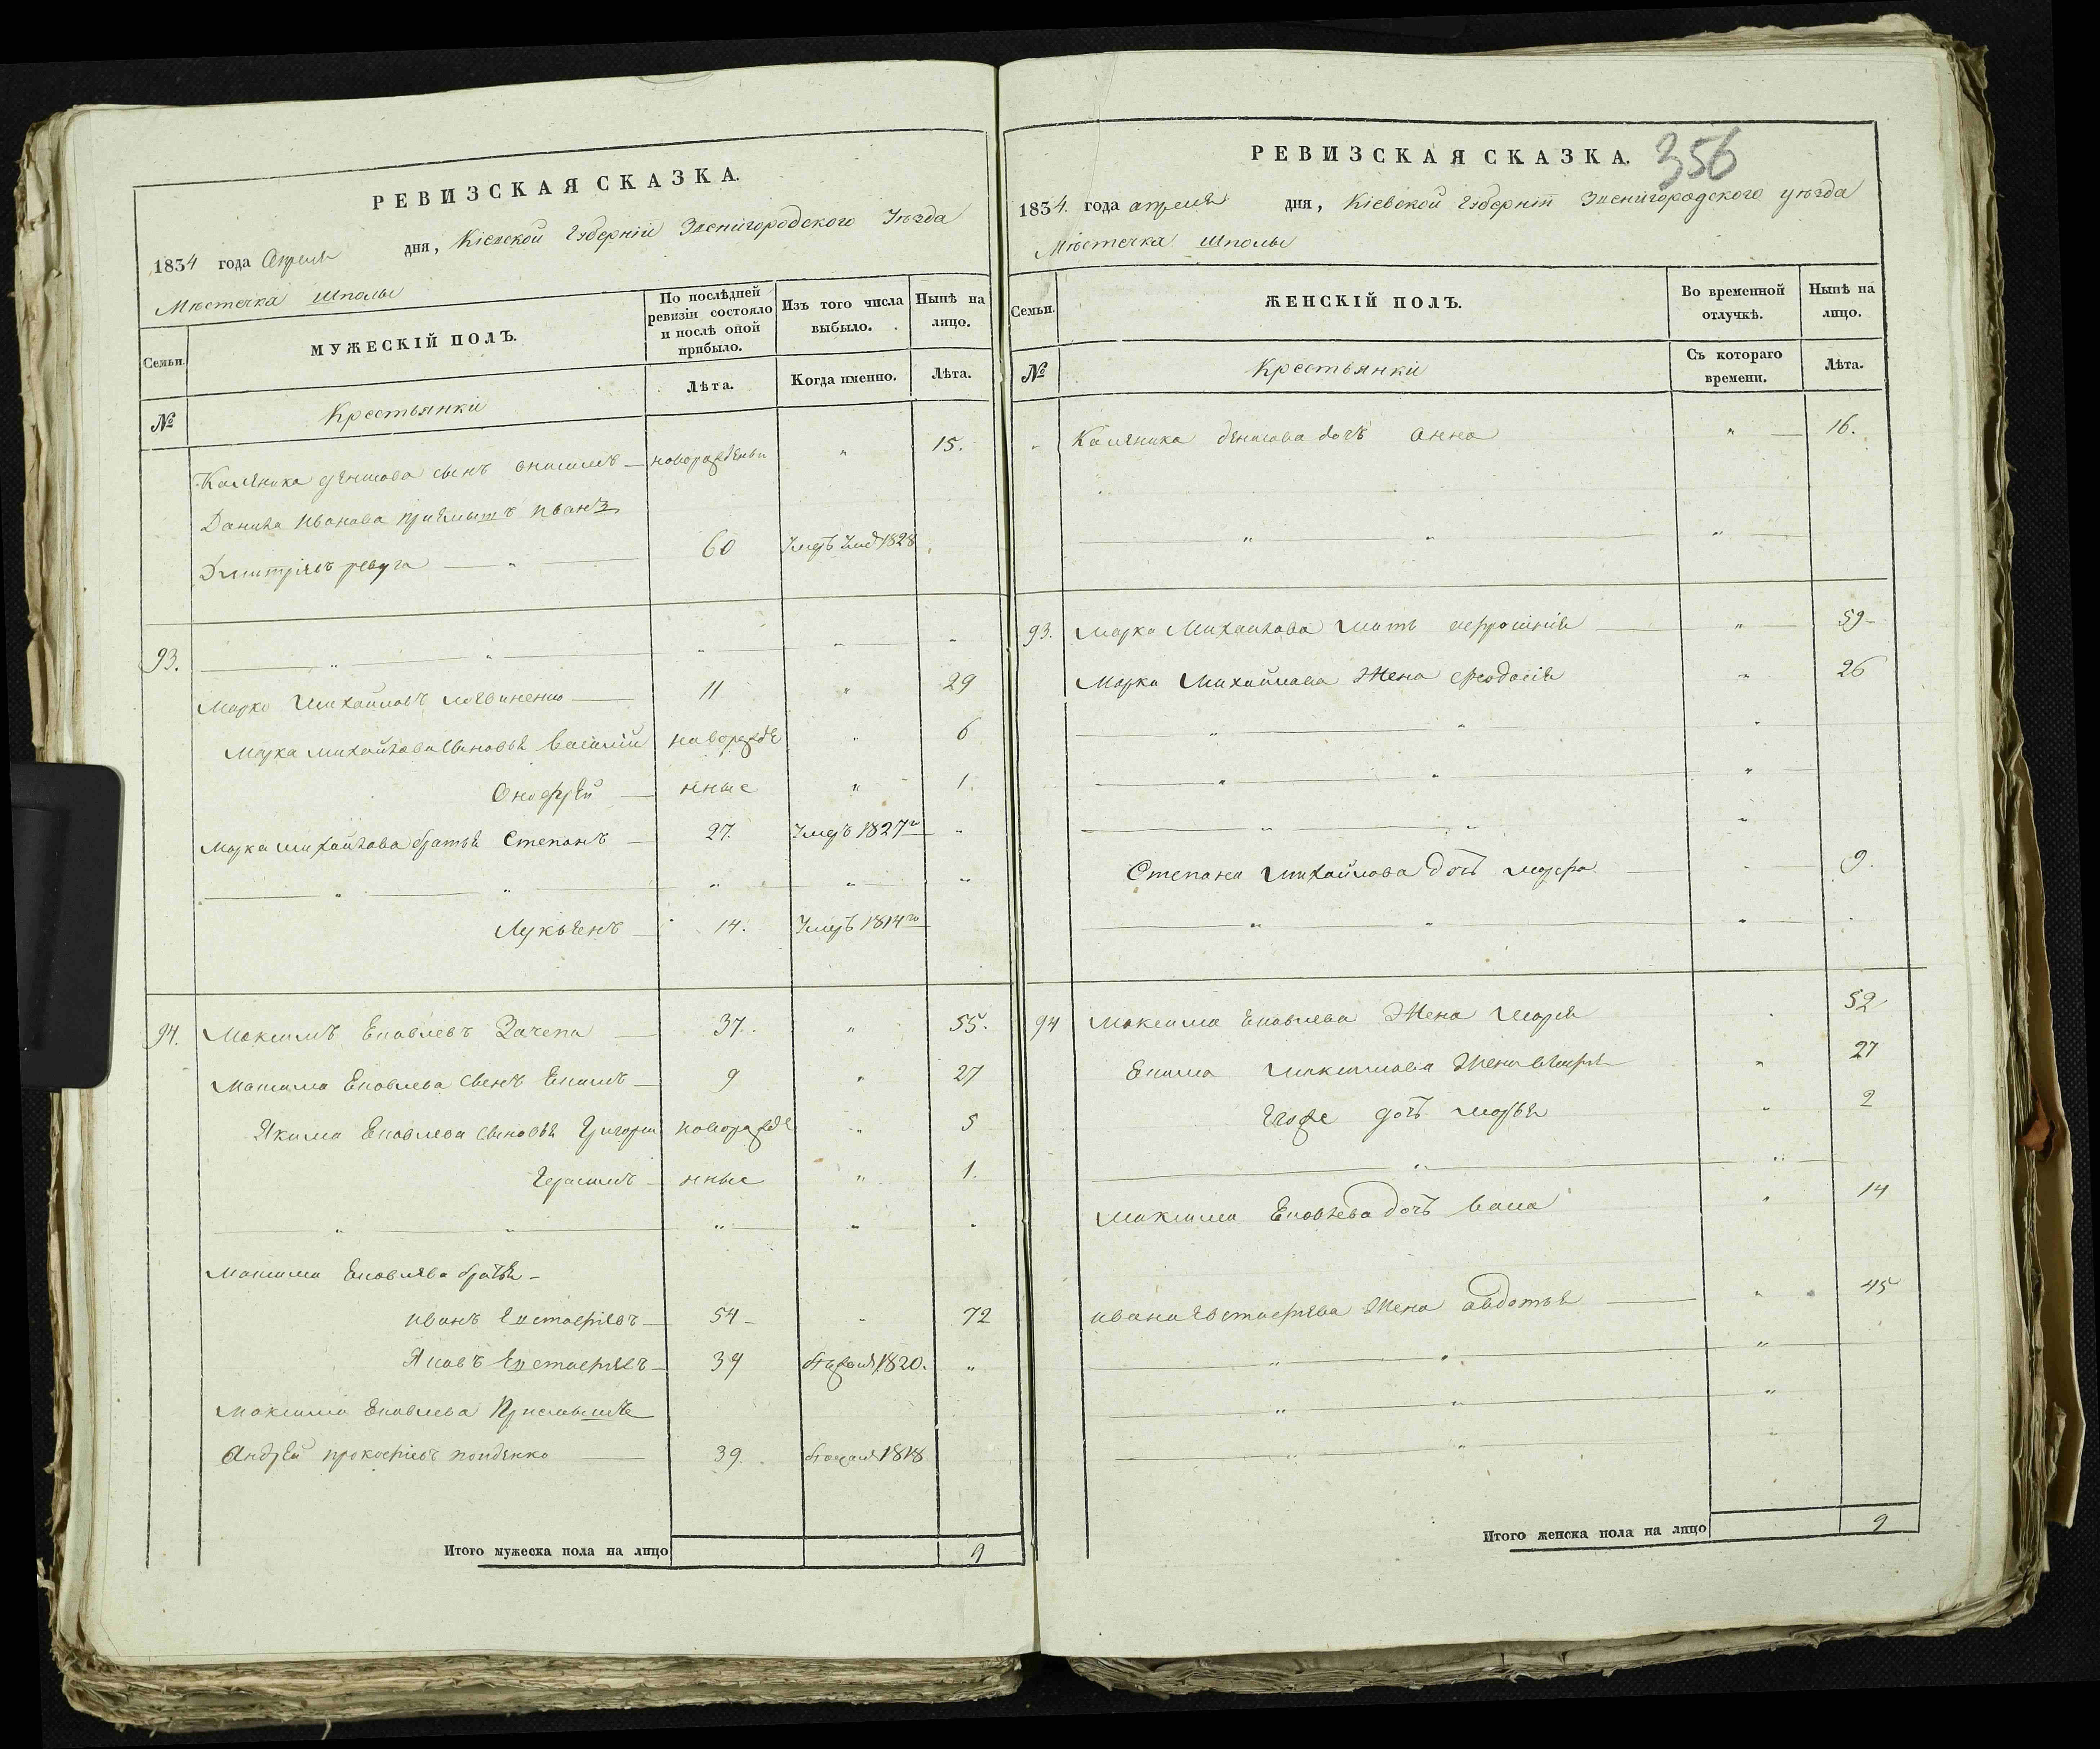 РЕВИЗСКАЯ СКАЗКА.
1834 года Апреля дня, Кіевской Губерніи Звенигородского Уѣзда
Мѣстечка Шполы
Семьи.
МУЖЕСКІЙ ПОЛЪ.
По послѣдней ревизіи состояло и послѣ оной прибыло.
Изъ того числа выбыло.
Нынѣ на лицо.
№
Крестьянки
Лѣта.
Когда именно.
Лѣта.
Каленика денисова сынъ онисимъ новорожденъ " 15.
Данила Иванова приемышъ иванъ
Дмитріевъ ревуга 60 Умеръ 1828
93.
Марко Михайловъ 11 " 29
Марка михайлова сыновья василий новорожде " 6
Онофрей нные " 1.
Марка михайлова братья Степанъ 27. Умеръ 1827го "
Лукьянъ 14. Умеръ 1814го
94. Максимъ Ековлевъ Зачепа 37. " 55.
Максима Ековлева сынъ Екимъ 9 " 27
Якима Ековлева сыновья Григорий новорожде " 5
Герасимъ нные " 1.
Максима Ековлева братья
иванъ Евстафіевъ 54 " 72
Яковъ Евстафіевъ 39 1820. "
Максима Ековлева Приемышъ
Андрей прокофіевъ 39. 1818
Итого мужеска пола на лицо 9
РЕВИЗСКАЯ СКАЗКА. 356
1834. года апреля дня, Кіевской Губерніи Звенигородского уѣзда
Мѣстечка Шполы
Семьи.
ЖЕНСКІЙ ПОЛЪ.
Во временной отлучкѣ.
Нынѣ на лицо.
№
Крестьянки
Съ котораго времени.
Лѣта.
Каленика денисова дочь Анна " 16.
93. Марка Михайлова мать " 59
Марка Михайлова Жена феодосія " 26
Степана Михайлова дочь марфа 9.
94 Максима Ековлева Жена марія 52
Екима максимова Жена " 27
дочь марья " 2
Максима Ековлева дочь " 14
ивана Евстафіева Жена авдотья " 45
Итого женска пола на лицо 9